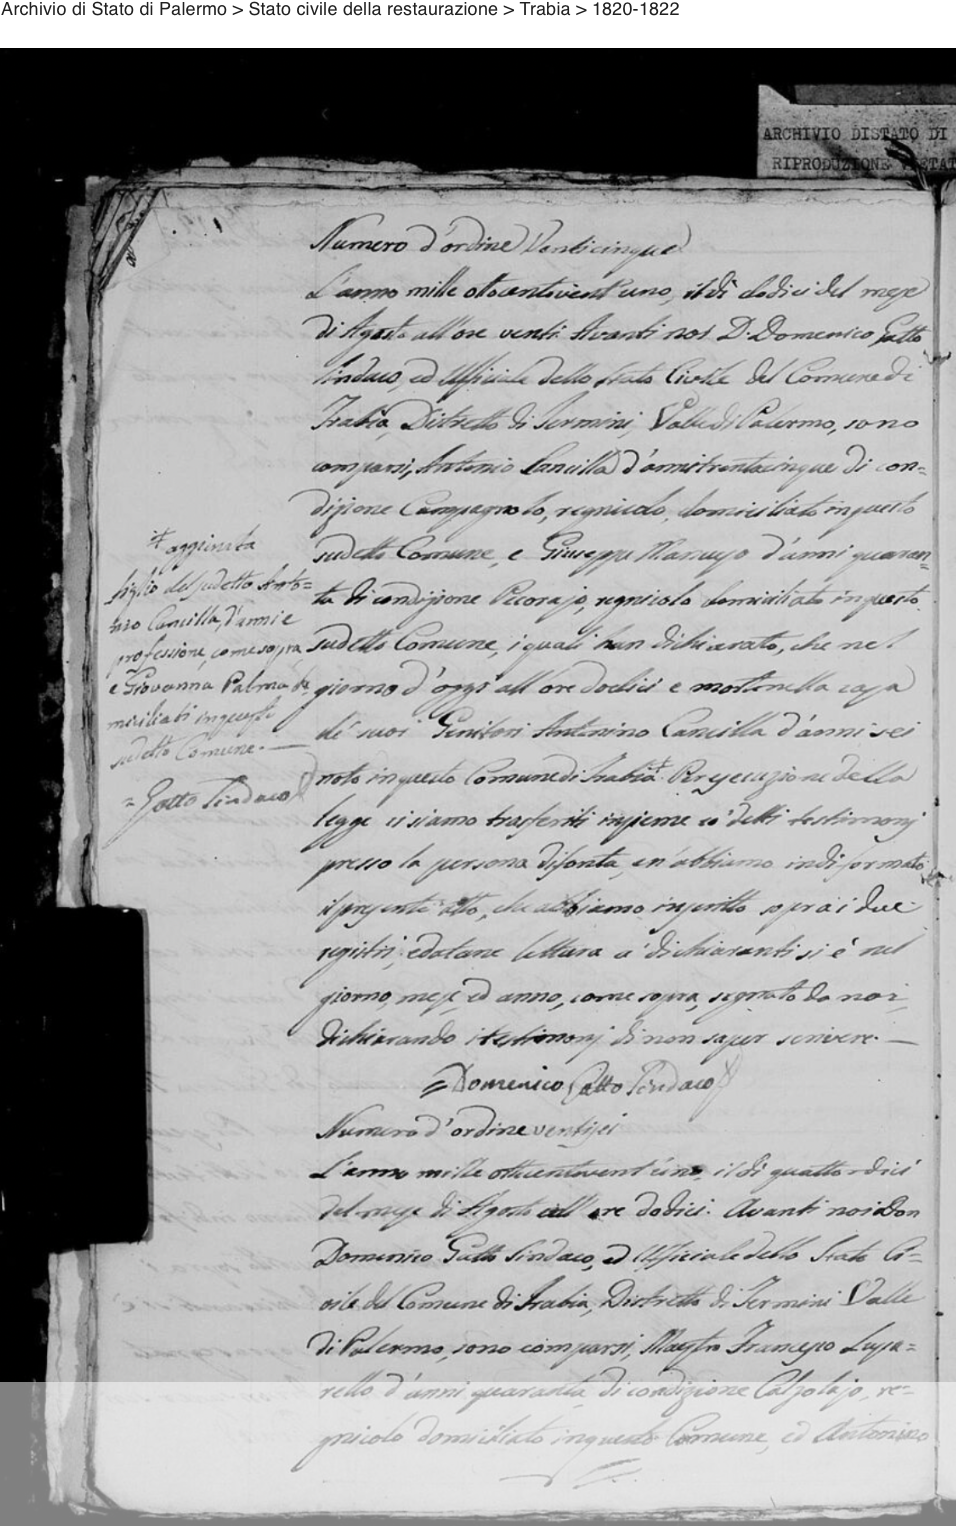 Archivio di Stato di Palermo > Stato civile della restaurazione > Trabia > 1820-1822
ARCHIVIO DISTATO DI
RIPRODUZIONE VIETAT
Numero d'ordine Venticinque
L'anno mille ottocentovent'uno, il dì dodici del mese
di Agosto all'ore venti Avanti noi D. Domenico Gatto
Sindaco, ed Ufficiale dello Stato Civile del Comune di
Trabia, Distretto di Termini, Valle di Palermo, sono
comparsi, Antonio Cancilla d'anni trentacinque di con=
dizione Campagnolo, regnicolo, domiciliato in questo
sudetto Comune, e Giuseppe d'anni quaran=
ta di condizione Pecorajo, regnicolo domiciliato in questo
sudetto Comune, i quali han dichiarato, che nel
giorno d'oggi all'ore dodici e morto nella casa
de' suoi Genitori Antonino Cancilla d'anni sei
nato in questo Comune di Trabia Per esecuzione della
legge ci siamo trasferiti insieme co' detti testimonj
presso la persona difonta, en'abbiamo indi formato
il presente atto, che abbiamo inscritto sopra i due
registri, e datane lettura a' dichiaranti si è nel
giorno, mese, ed anno, come sopra, segnato da noi,
dichiarando i testimonj di non saper scrivere.
= Domenico Gatto Sindaco
aggionata
figlio del sudetto Anto=
nio Cancilla, d'anni e
professione, come sopra,
e Giovanna Palma do
miciliati in questo
sudetto Comune.
= Gatto Sindaco
Numero d'ordine ventisei
L'anno mille ottocentovent'uno, il dì quattordici
del mese di Agosto all'ore dodici. Avanti noi Don
Domenico Gatto Sindaco, ed Ufficiale dello Stato Ci=
vile del Comune di Trabia, Distretto di Termini Valle
di Palermo, sono comparsi, Mastro Francesco Lusa=
rello d'anni quaranta di condizione Calzolajo, re=
gnicolo domiciliato in questo Comune, ed Antonino